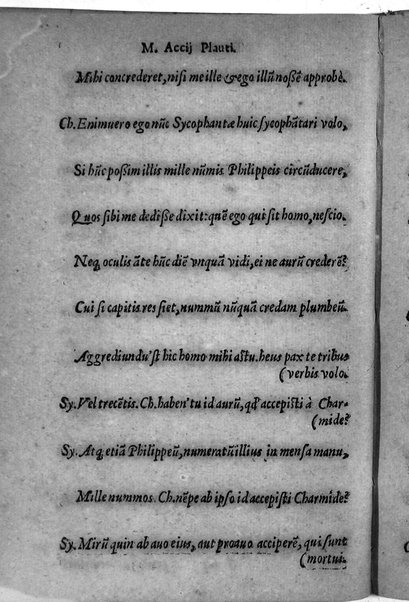 M. Accij Plauti.
Mihi concrederet, nisi me ille & ego illũ noſſẽ approbè.
Ch. Enimuero ego nũc Sycophantæ huic ſycophãtari volo,
Si hũc poſſim illis mille nũmis Philippeis circũducere,
Quos ſibi me dediſſe dixit: quẽ ego qui ſit homo, neſcio.
Neq, oculis ãte hũc diẽ vnquã vidi, ei ne aurũ crederẽ?
Cui ſi capitis res ſiet, nummũ nũquã credam plumbeũ.
Aggrediundu'ſt hic homo mihi aſtu. heus pax te tribus
(verbis volo.
Sy. Vel trecẽtis. Ch. haben' tu id aurũ, qđ accepiſti à Char-
(mide?
Sy. Atq, etiã Philippeũ, numeratũ illius in menſa manu,
Mille nummos. Ch. nẽpe ab ipſo id accepiſti Charmide?
Sy. Mirũ quin ab auo eius, aut proauo acciperẽ, qui ſunt
(mortui.